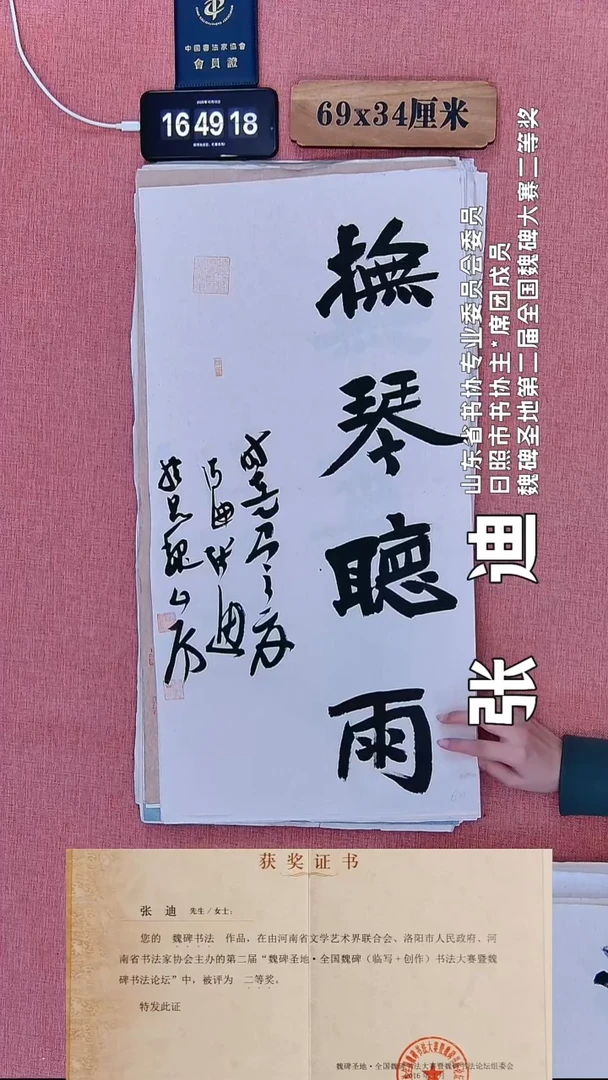 中國書法家協會
會員證
16 49 18
69x34厘米
撫琴聽雨
山东省书协专业委员会委员
日照市书协主*席团成员
魏碑圣地第二届全国魏碑大赛二等奖
张 迪
获奖证书
张 迪 先生/女士:
您的 魏碑书法 作品,在由河南省文学艺术界联合会、洛阳市人民政府、河
南省书法家协会主办的第二届“魏碑圣地·全国魏碑(临写+创作)书法大赛暨魏
碑书法论坛”中,被评为 二等奖。
特发此证
魏碑圣地·全国魏碑书法大赛暨魏碑书法论坛组委会